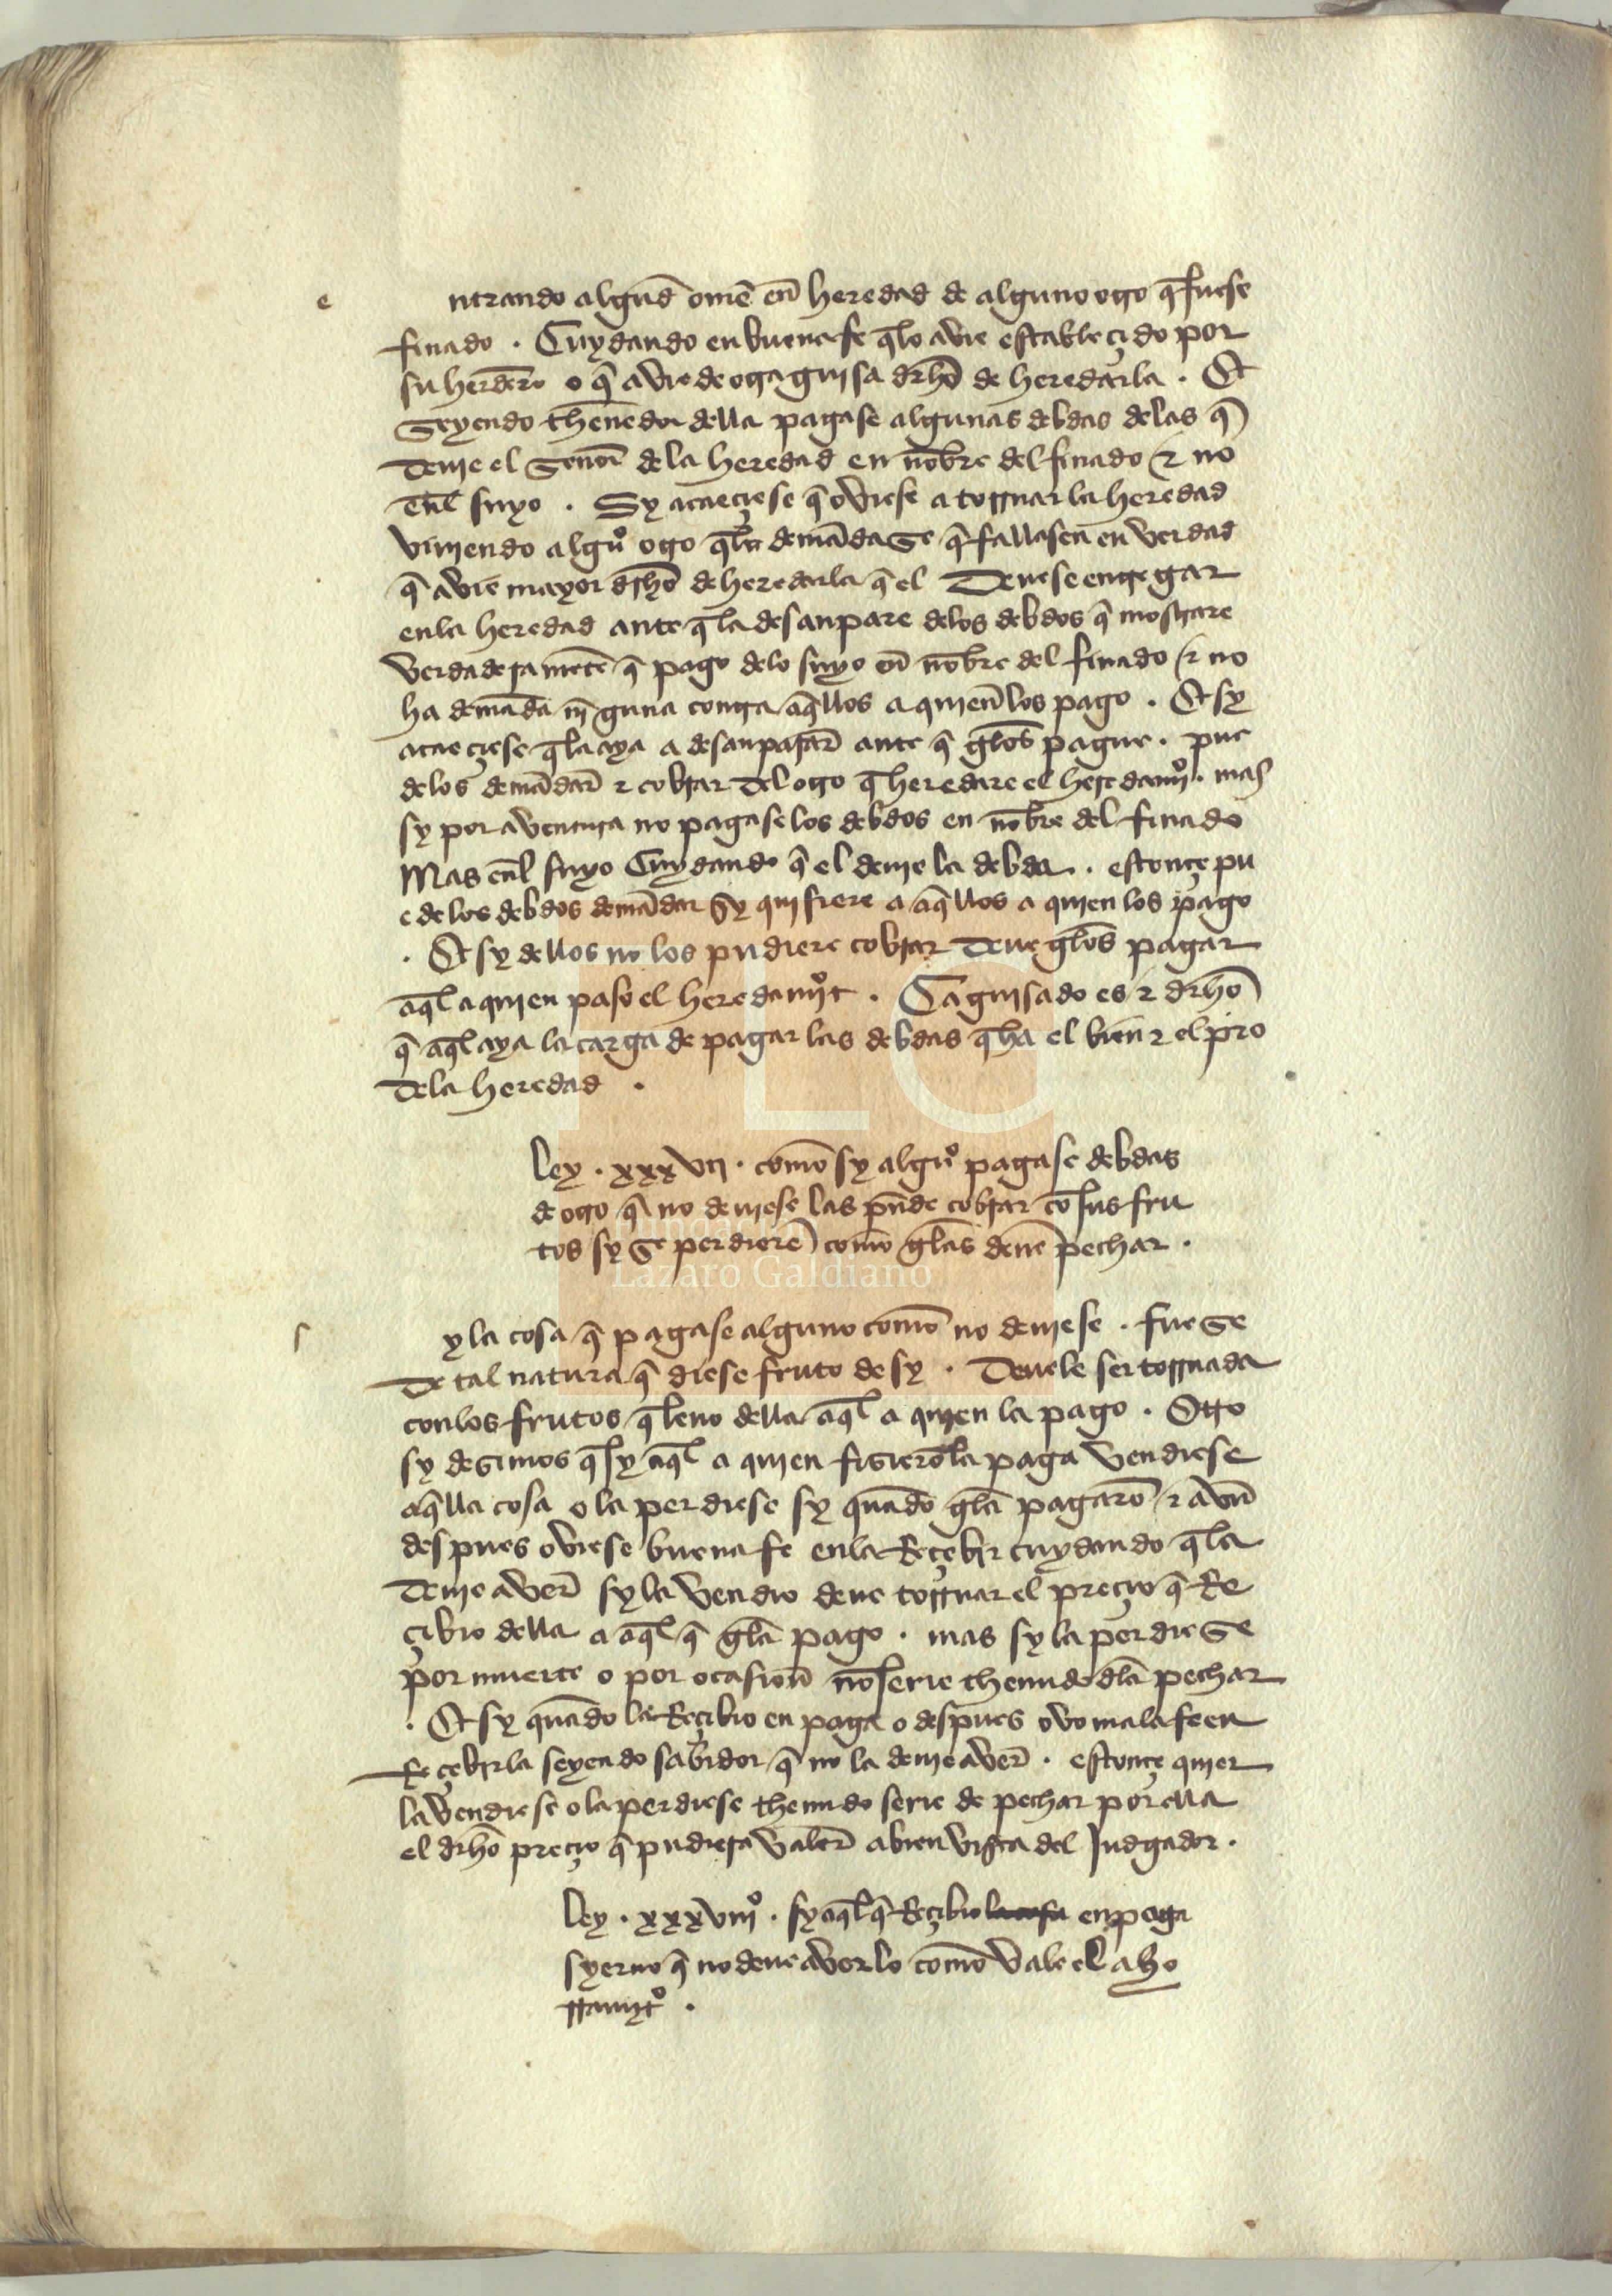 e ntrando algund̄ omē en̄ heredad de alguno otro q̄ fuese
finado . Cuydando en buena fe q̄ lo avie establesçido por
su herd̄ero o q̄ avie de otra guisa dr̄ho de heredarla . Et
seyendo thenedor della pagase algunas debdas delas q̄
devie el senor̄ dela heredad en nōbre del finado & no
en̄l suyo . Sy acaeçiese q̄ oviese a tornar la heredad
viniendo algu͂o otro q̄ la demādase q̄ fallasen en verdad
q̄ avie mayor dr̄ho de heredarla q̄ el Deuese entregar
enla heredad ante q̄ la desanpare delos debdos q̄ mostrare
verdaderamētē q̄ pago delo suyo en̄ nōbre del finado & no
ha demāda nīguna contra aq̄llos a quien̄ los pago . Et sy
acaeçiese q̄ la aya a desanparar̄ ante q̄ gelos̄ pague . pue
delos demādar̄ & cobrar del otro q̄ heredare el heredamio . mas
sy por aventura no pagase los debdos en nōbre del finado
Mas en̄l suyo Cuydando q̄ el devie la debda . estonçe pu
ede los debdos demādar sy quisiere a aq̄llos a quien los pago
. Et sy dellos no los pudiere cobrar deue gelos̄ pagar
aq̄l a quien paso el heredamiot . Ca guisado es & dr̄ho
q̄ aq̄l aya la carga de pagar las debdas q̄ ha el bien & el pro
dela heredad .
Ley . xxxvij . como̅ sy algu͂o pagase debdas
de otro q̄ no deviese las pūde cobrar co̅ sus fru
tos sy se perdierē como̅ gelas̄ deuē pechar .
s y la cosa q̄ pagase alguno como̅ no deviese . fuese
de tal natura q̄ diese fruto de sy . Deuele ser tornada
conlos frutos q̄ leuo della aq̄l a quien la pago . Otro
sy desimos q̄ sy aq̄l a quien fisierō la paga vendiese
aq̄lla cosa o la perdiese sy quādo gelā pagarō & avn̄
despues oviese buena fe enla Reçebir cuydando q̄ la
devie aver̄ sy la vendio deue tornar el preçio q̄ Re
çibio della a aq̄l q̄ gelā pago . mas sy la perdiese
por muerte o por ocasion̄ no̅ serie thenudo delā pechar
. Et sy quādo la Reçibio en paga o despues ovo mala fe en
Reçebirla seyendo sabidor q̄ no la devie aver̄ . estonçe quier
la vendiese o la perdiese thenudo serie de pechar por ella
el dr̄ho preçio q̄ pudiera valer̄ a bien vista del Judgador .
Ley . xxxviijo . sy aq̄l q̄ Reçibio la cosa en paga
syeruo q̄ no deue averlo como̅ vale el aho
rramiēto .